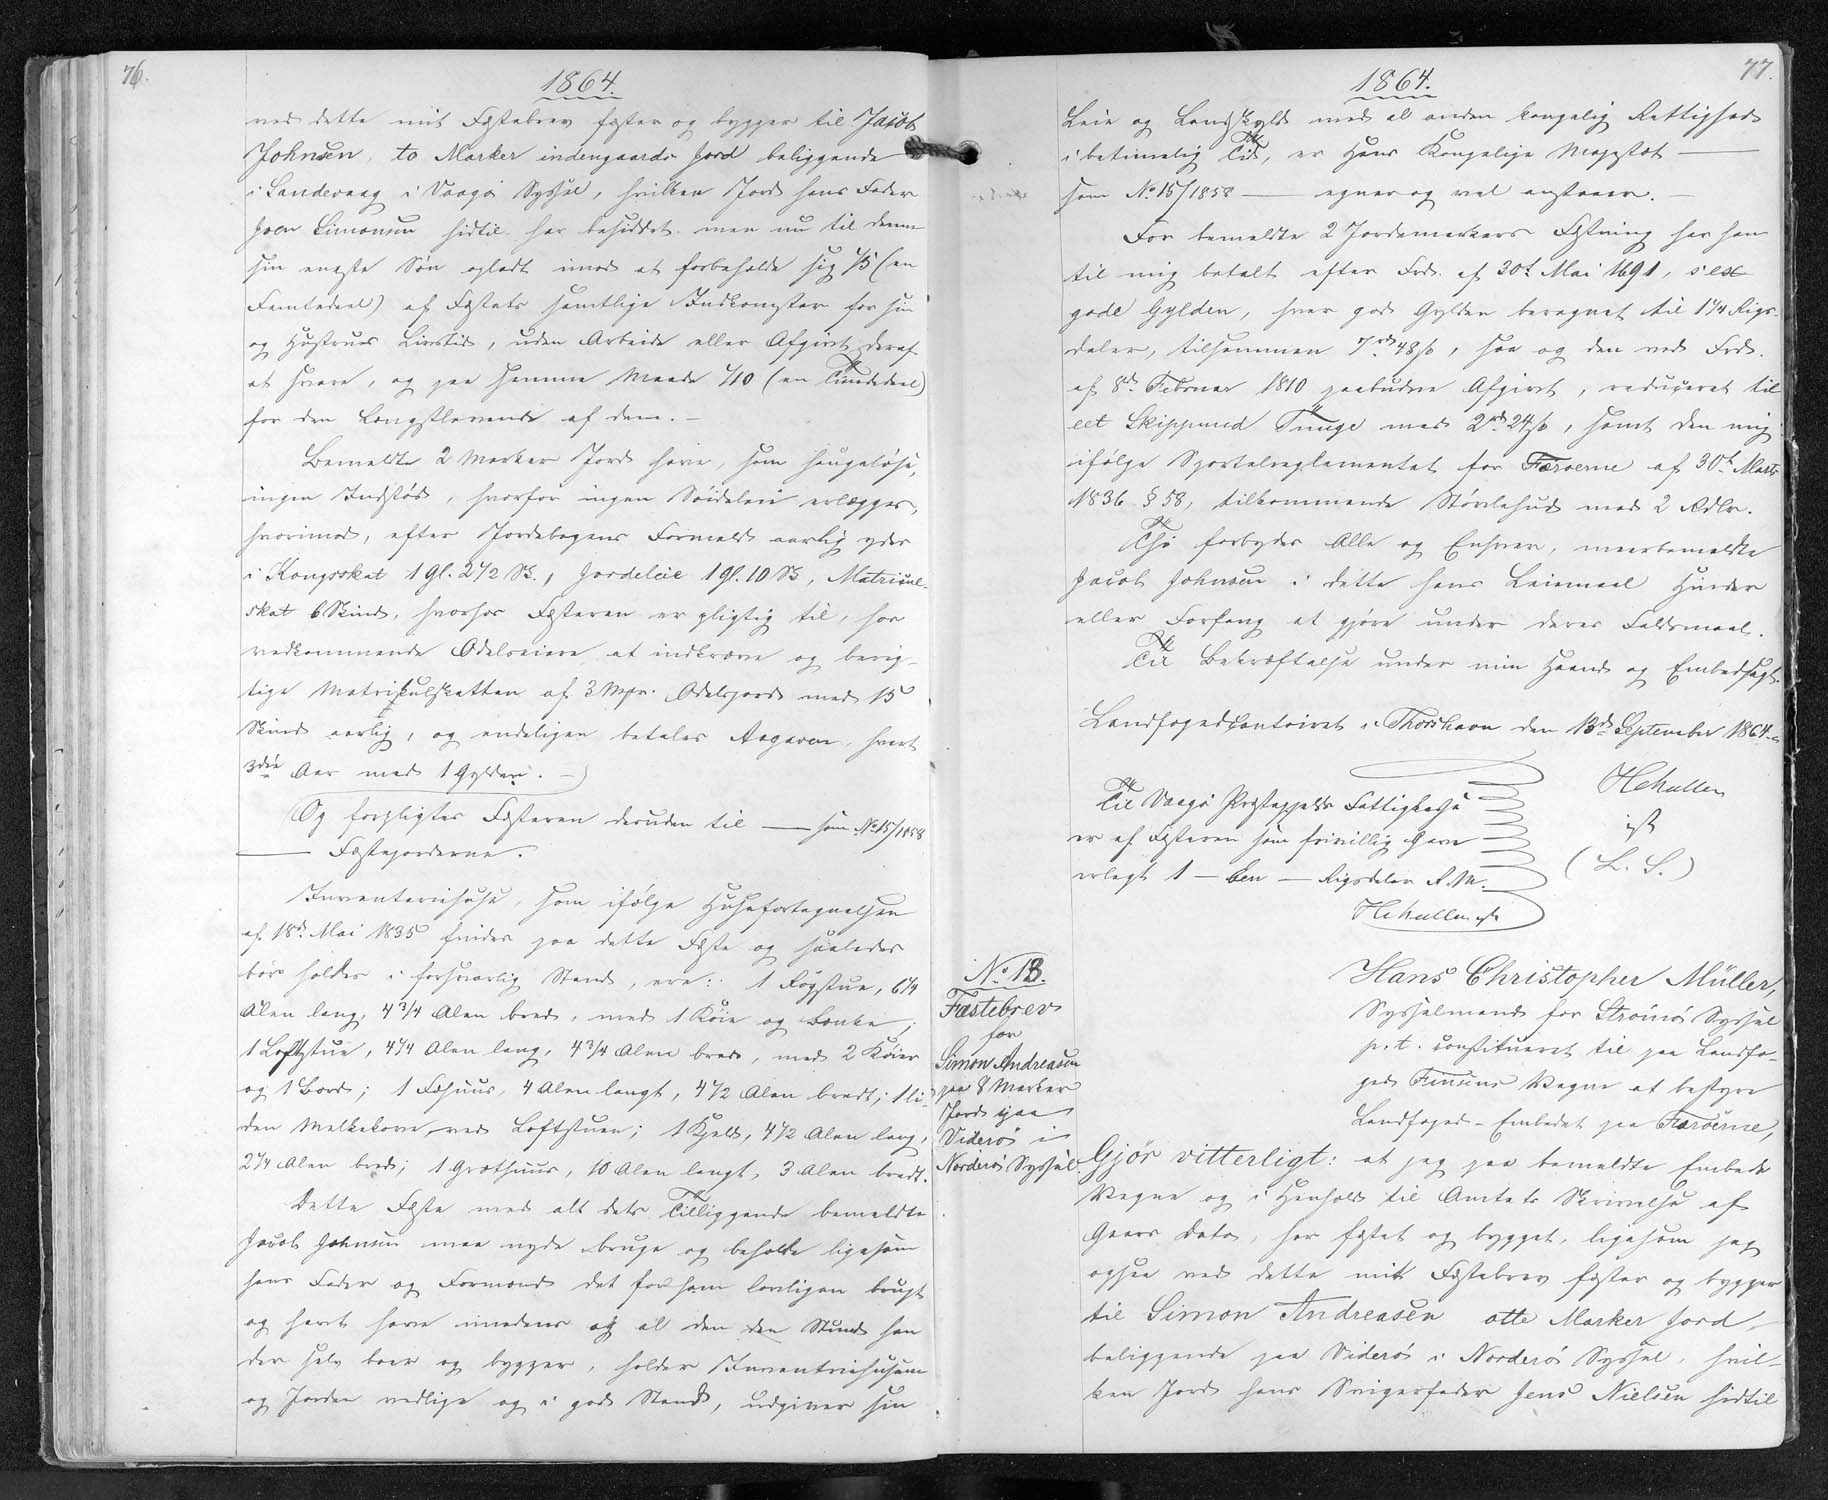 76.
1864.
ved dette mit Fæstebrev fæster og bygger til Jacob
Johnsen, to Marker indengaards Jord beliggende
i Sandevaag i Vaagø Syssel, hvilken Jord hans Fader
Joen Simonsen hidtil har besiddet men nu til denne
sin eneste Søn opladt imod at forbeholde sig 1/5 (en
Femtedeel) af Fæstets samtlige Indkomster for sin
og Hustrues Livstid, uden Arbeide eller Afgivt deraf
at svare, og paa samme Maade 1/10 (en Tiendedeel)
for den Længstlevende af dem. –
Bemeldte 2 Marker Jord have, som haugeløse,
ingen Indstød, hvorfor ingen Søideleie erlægges,
hvorimod, efter Jordebogens Formeld aarlig ydes
i Kongsskat 1 Gl. 2 1/2 Sk., Jordeleie 1 Gl. 10 Sk, Matricul-
skat 6 Skind, hvorhos Fæsteren er pligtig til, hos
vedkommende Odelseiere at indkræve og berig-
tige Matriculskatten af 3 Mkr. Odelsjord med 15
Skind aarlig, og endeligen betales Aagaven, hvert
3die Aar med 1 Gylden. –
Og forpligtes Fæsteren desuden til — som No 15/1858
— Fæstejorderne.
Inventariehuse, som ifølge Husefortegnelsen
af 18d. Mai 1835 findes paa dette Fæste og saaledes
bør holdes i forsvarlig Stand, ere: 1 Røgstue, 6 1/4
Alen lang, 4 3/4 Alen bred, med 1 Køie og Bænke;
1 Loftstue, 4 1/4 Alen lang, 4 3/4 Alen bred, med 2 Køier
og 1 Bord; 1 Fæhuus, 4 Alen langt, 4 1/2 Alen bredt; 1 li-
den Melkekove ved Loftstuen; 1 Hjeld, 4 1/2 Alen lang,
2 1/4 Alen bred; 1 Græthuus, 10 Alen langt, 3 Alen bredt.
Dette Fæste med alt dets Tilliggende bemeldte
Jacob Johnsen maa nyde bruge og beholde ligesom
hans Fader og Formænd det før ham lovligen brugt
og havt have imedens og al den den Stund han
der selv boer og bygger, holder Inventariehusene
og Jorden vedlige og i god Stand, udgiver sin
77.
1864.
Leie og Landskyld med al anden kongelig Rettighed
i betimelig Tid, er Hans Kongelige Majestæt —
som No. 15/1858 — egner og vel anstaaer. –
For bemeldte 2 Jordemarkers Fæstning har han
til mig betalt efter Frdn. af 30t Mai 1691, sex
gode Gylden, hver god Gylden beregnet til 1 1/4 Rigs-
daler, tilsammen 7 rd 48 s, saa og den ved Frdn.
af 8d. Februar 1810 paabudne Afgivt, reduceret til
eet Skippund Tunge med 2 rd 24 s, samt den mig
ifølge Sportelreglementet for Færøerne af 30t Marts
1836 § 58, tilkommende Støvlehud med 2 Rdlr.
Thi forbydes Alle og Enhver, meerbemeldte
Jacob Johnsen i dette hans Leiemaal Hinder
eller Forfang at gjøre under deres Faldsmaal.
Til Bekræftelse under min Haand og Embedssegl.
Landfogedcontoiret i Thorshavn den 13d September 1864.
HCMüller
cst
(L. S.)
Til Vaagø Præstegjelds Fattigkasse
er af Fæsteren som frivillig Gave
erlagt 1 — een — Rigsdaler R.M.
HCMüller cst
No 13.
Fæstebrev
for
Simon Andreasen
paa 8 Marker
Jord paa
Viderø i
Norderø Syssel.
Hans Christopher Müller,
Sysselmand for Strømø Syssel
p. t. constitueret til paa Landfo-
ged Finsens Vegne at bestyre
Landfoged-Embedet paa Færøerne,
Gjør vitterligt: at jeg paa bemeldte Embeds
Vegne og i Henhold til Amtets Skrivelse af
Gaars Dato, har fæstet og bygget, ligesom jeg
ogsaa ved dette mit Fæstebrev fæster og bygger
til Simon Andreasen otte Marker Jord,
beliggende paa Viderø i Norderø Syssel, hvil-
ken Jord hans Svigerfader Jens Nielsen hidtil